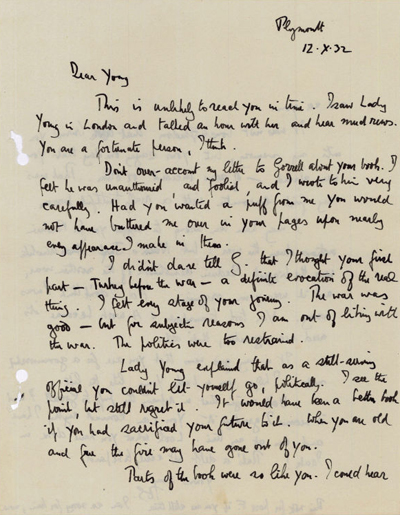 Plymouth
12.X.32
Dear Young
This is unlikely to reach you in time. I saw Lady
Young in London and talked an hour with her and hear much news.
You are a fortunate person, I think.
Don't over-account my letter to Gorell about your book. I
felt he was unauthorised, and foolish, and I wrote to him very
carefully. Had you wanted a puff from me you would
not have buttered me over in your pages upon nearly
every appearance I make in them.
I didn't dare tell G. that I thought your first
part – Turkey before the war – a definite evocation of the real
thing. I felt every stage of your journey. The war was
good – but for subjective reasons I am out of liking with
the war. The politics were too restrained.
Lady Young explained that as a still-serving
official you couldn't let yourself go, politically. I see the
point, but still regret it. It would have been a better book
if you had sacrificed your future to it. When you are old
and free the fire may have gone out of you.
Parts of the book were so like you. I could hear